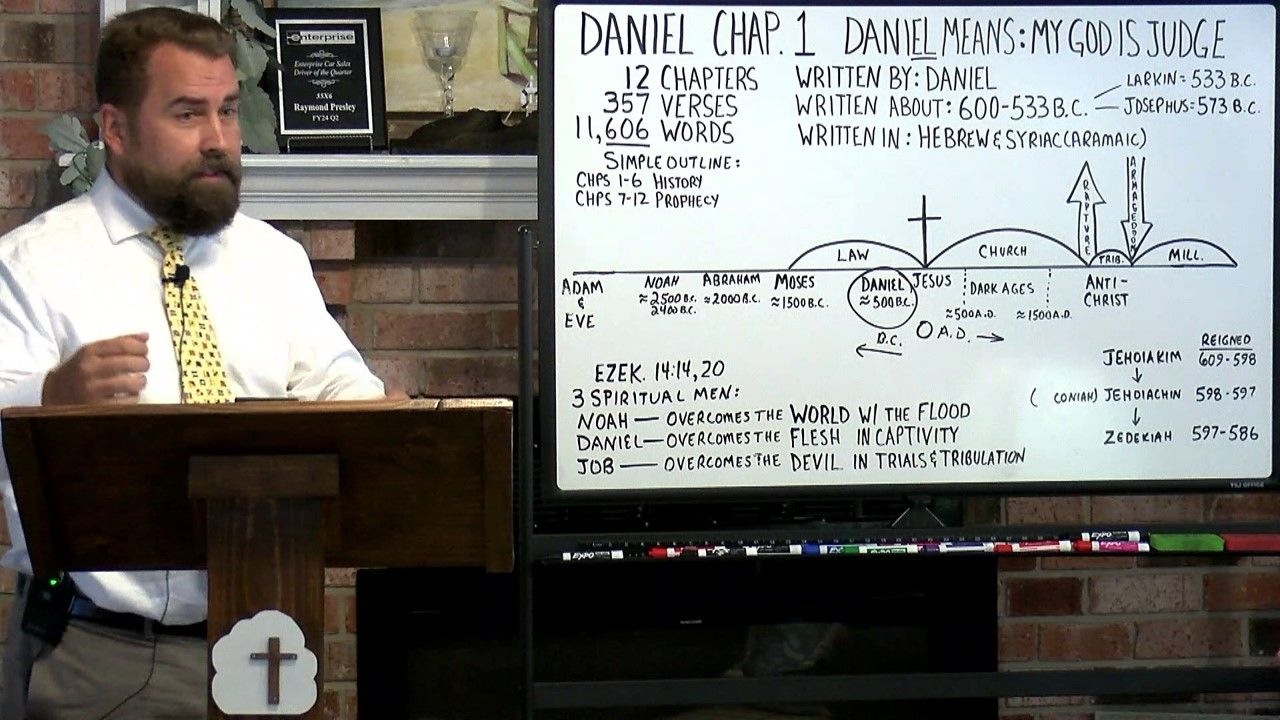 enterprise
Enterprise Car Sales
Driver of the Quarter
35X6
Raymond Presley
FY24 Q2
DANIEL CHAP. 1 DANIEL MEANS: MY GOD IS JUDGE
12 CHAPTERS
357 VERSES
11,606 WORDS
WRITTEN BY: DANIEL
WRITTEN ABOUT: 600-533 B.C.
LARKIN = 533 B.C.
JOSEPHUS-573 B.C.
WRITTEN IN: HEBREW & SYRIAC(ARAMAIC)
SIMPLE OUTLINE:
CHPS 1-6 HISTORY
CHPS 7-12 PROPHECY
RAPTURE
ARMAGEDDON
LAW
CHURCH
TRIB.
MILL.
ADAM
&
EVE
NOAH
≈2500 B.C.
2400 B.C.
ABRAHAM
≈2000 B.C.
MOSES
≈1500 B.C.
DANIEL
≈500 B.C.
JESUS
DARK AGES
≈500 A.D.
≈1500 A.D.
ANTI-
CHRIST
B.C. 0 A.D.
EZEK. 14:14, 20
3 SPIRITUAL MEN:
NOAH — OVERCOMES THE WORLD W/ THE FLOOD
DANIEL— OVERCOMES THE FLESH IN CAPTIVITY
JOB — OVERCOMES THE DEVIL IN TRIALS & TRIBULATION
REIGNED
JEHOIAKIM 609-598
(CONIAH) JEHOIACHIN 598-597
ZEDEKIAH 597-586
EXPO
EXPO
EXPO